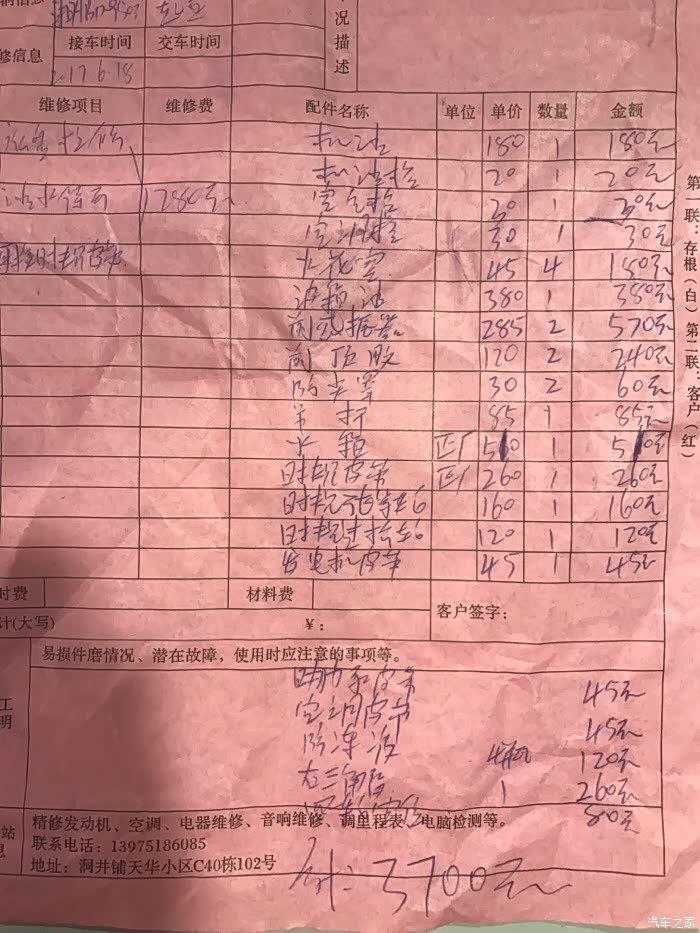 接车时间 交车时间
修信息
2.17 6.18
况描述
维修项目 维修费 配件名称 单位 单价 数量 金额
机油 180 1 180元
机油格 20 1 20元
280元 空气格 30 1 30元
空调格 30 1 30元
火花塞 45 4 180元
波箱油 380 1 380元
前减振器 285 2 570元
前顶胶 120 2 240元
防尘罩 30 2 60元
吊杆 85 1 85元
水箱 正厂 510 1 510元
时规皮带 正厂 260 1 260元
时规 160 1 160元
时规 120 1 120元
发电机皮带 45 1 45元
时费 材料费
计(大写) ¥:
客户签字:
易损件磨情况、潜在故障,使用时应注意的事项等。
助力泵皮带 45元
空调皮带 45元
防冻液 4瓶 120元
左三角臂 1 260元
80元
工
明
站
息
精修发动机、空调、电器维修、音响维修、调里程表、电脑检测等。
联系电话:13975186085
地址:洞井铺天华小区C40栋102号
计:3700元
第一联:存根(白) 第二联:客户(红)
汽车之家